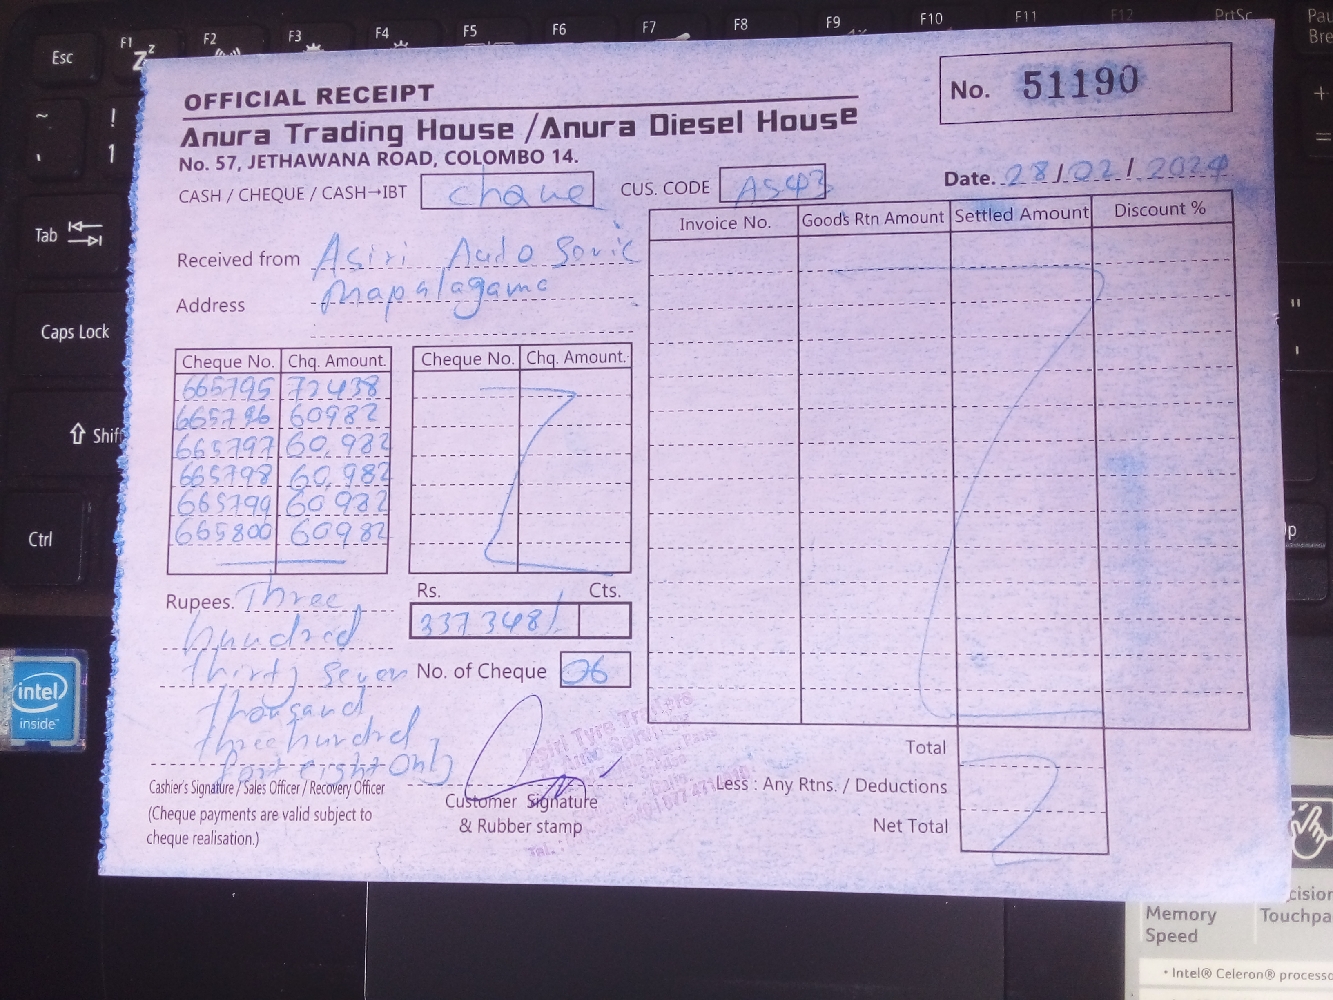 Esc
F1
F2
F3
F4
F5
F6
F7
F8
F9
F10
F11
F12
PrtSc
Tab
Caps Lock
Shif
Ctrl
intel
inside
OFFICIAL RECEIPT
No. 51190
Anura Trading House /Anura Diesel House
No. 57, JETHAWANA ROAD, COLOMBO 14.
CASH / CHEQUE / CASH→IBT
CUS. CODE AS43
Date. 28/02/2024
Received from Asiri Auto
Address Mapalagama
Invoice No. Good's Rtn Amount Settled Amount Discount %
Cheque No. Chq. Amount. Cheque No. Chq. Amount.
665795 72438
665796 60982
665797 60,982
665798 60,982
665799 60982
665800 60982
Rs. Cts.
337348/
Rupees. Three
hundred
thirty seven
thousand
three hundred
fort eight Only
No. of Cheque 06
Cashier's Signature / Sales Officer / Recovery Officer
(Cheque payments are valid subject to
cheque realisation.)
Asiri Tyre Traders
Customer Signature
& Rubber stamp
Total
Less : Any Rtns. / Deductions
Net Total
Memory
Speed
cision
Touchpa
• Intel® Celeron® processo